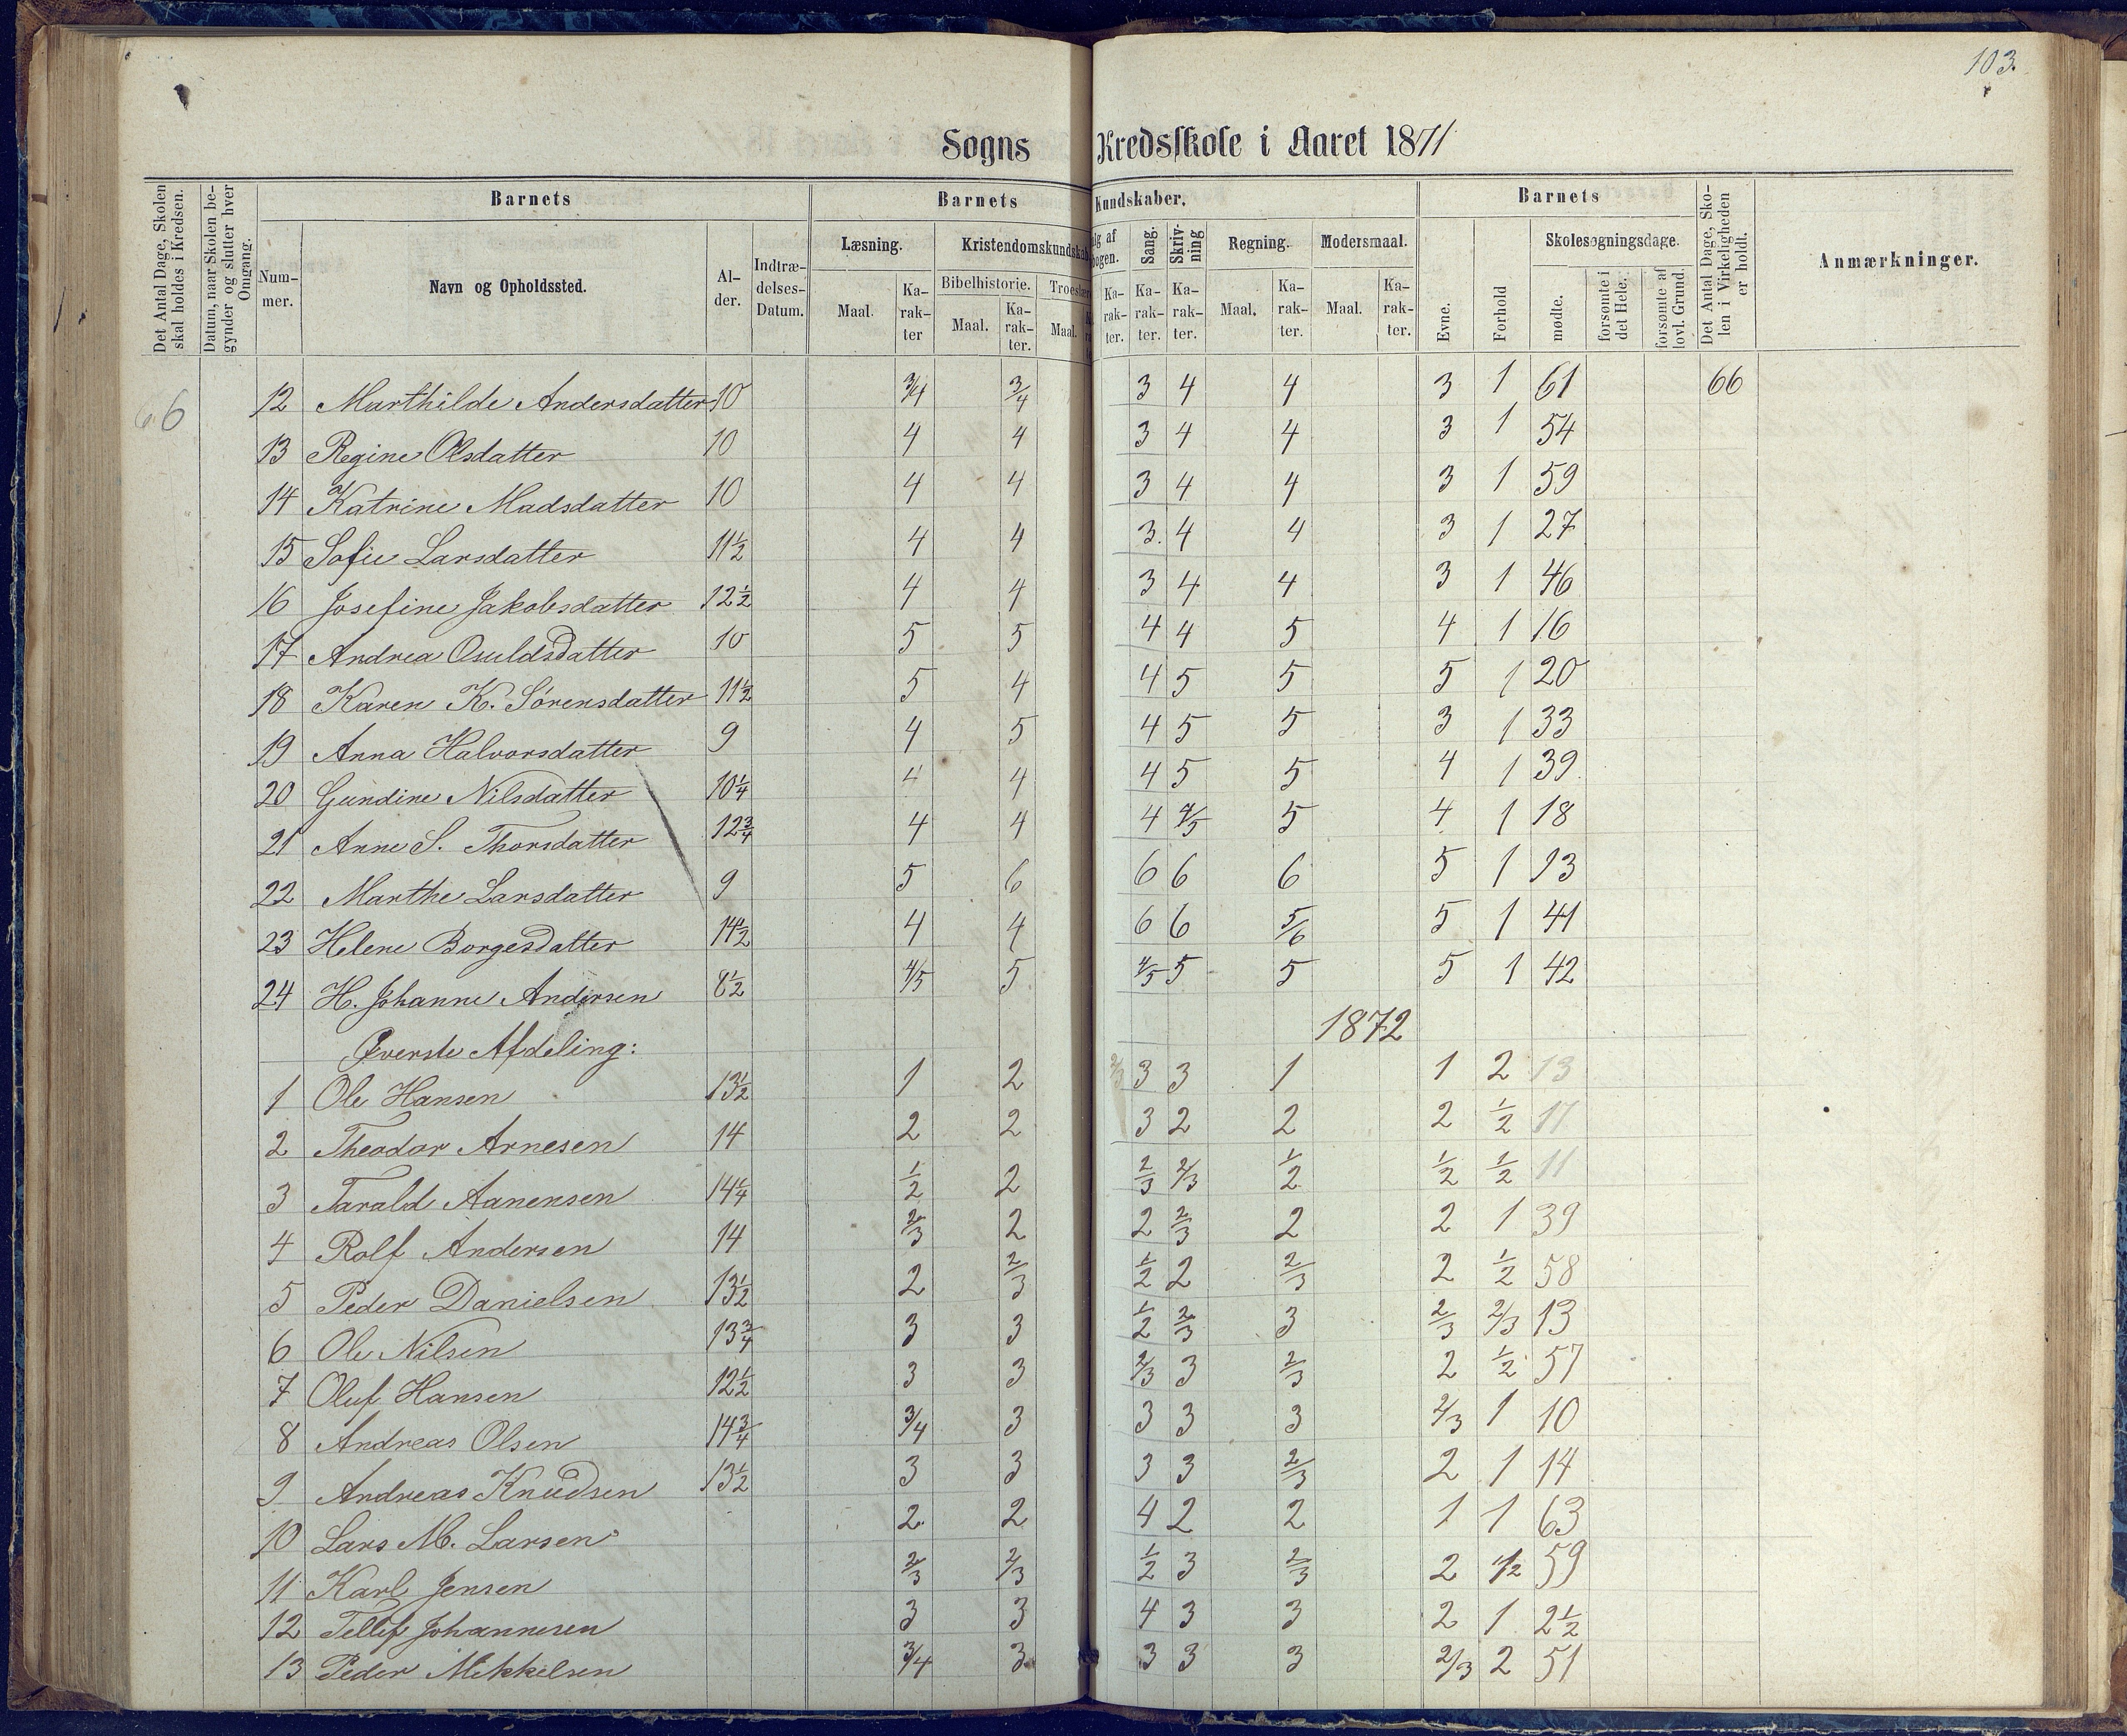 103.
Sogns Kredsskole i Aaret 1871
Det Antal Dage, Skolen skal holdes i Kredsen.
Datum, naar Skolen be-
gynder og slutter hver
Omgang.
Barnets
Num-
mer.
Navn og Opholdssted.
Al-
der.
Indtræ-
delses-
Datum.
Barnets Kundskaber.
Læsning.
Maal.
Ka-
rak-
ter
Kristendomskundskab
Bibelhistorie.
Maal.
Ka-
rak-
ter.
Troeslære
Maal.
lg af
bogen.
Ka-
rak-
ter.
Sang.
Ka-
rak-
ter.
Skriv-
ning
Ka-
rak-
ter.
Regning.
Maal.
Ka-
rak-
ter.
Modersmaal.
Maal.
Ka-
rak-
ter.
Barnets
Evne.
Forhold
Skolesøgningsdage.
mødte.
forsømte i
det Hele.
forsømte af
lovl. Grund.
Det Antal Dage, Sko-
len i Virkeligheden
er holdt.
Anmærkninger.
66 12 Marthilde Andersdatter 10 3/4 3/4 3 4 4 3 1 61 66
13 Regine Olsdatter 10 4 4 3 4 4 3 1 54
14 Katrine Madsdatter 10 4 4 3 4 4 3 1 59
15 Sofie Larsdatter 11½ 4 4 3. 4 4 3 1 27
16 Josefine Jakobsdatter 12½ 4 4 3 4 4 3 1 46
17 Andrea Osuldsdatter 10 5 5 4 4 5 4 1 16
18 Karen K. Sørensdatter 11½ 5 4 4 5 5 5 1 20
19 Anna Halvorsdatter 9 4 5 4 5 5 3 1 33
20 Gundine Nilsdatter 10¼ 4 4 4 5 5 4 1 39
21 Anne S. Thorsdatter 12¾ 4 4 4 4/5 5 4 1 18
22 Marthe Larsdatter 9 5 6 6 6 6 5 1 13
23 Helene Borgesdatter 14½ 4 4 6 6 5/6 5 1 41
24 H. Johanne Andersen 8½ 4/5 5 4/5 5 5 5 1 42
1872
Øverste Afdeling:
1 Ole Hansen 13½ 1 2 2/3 3 3 1 1 2 13
2 Theodor Arnesen 14 2 2 3 2 2 2 1/2 17
3 Tarald Aanensen 14¼ 1/2 2 2/3 2/3 1/2 1/2 1/2 11
4 Rolf Andersen 14 2/3 2 2 2/3 2 2 1 39
5 Peder Danielsen 13½ 2 2/3 1/2 2 2/3 2 1/2 58
6 Ole Nilsen 13¾ 3 3 1/2 2/3 3 2/3 2/3 13
7 Oluf Hansen 12½ 3 3 2/3 3 2/3 2 1/2 57
8 Andreas Olsen 14¾ 3/4 3 3 3 3 2/3 1 10
9 Andreas Knudsen 13½ 3 3 3 3 2/3 2 1 14
10 Lars M. Larsen 2 2 4 2 2 1 1 63
11 Karl Jensen 2/3 2/3 1/2 3 2/3 2 1/2 59
12 Tellef Johannesen 3 3 4 3 3 2 1 2½
13 Peder Mikkelsen 3/4 3 3 3 3 2/3 2 51